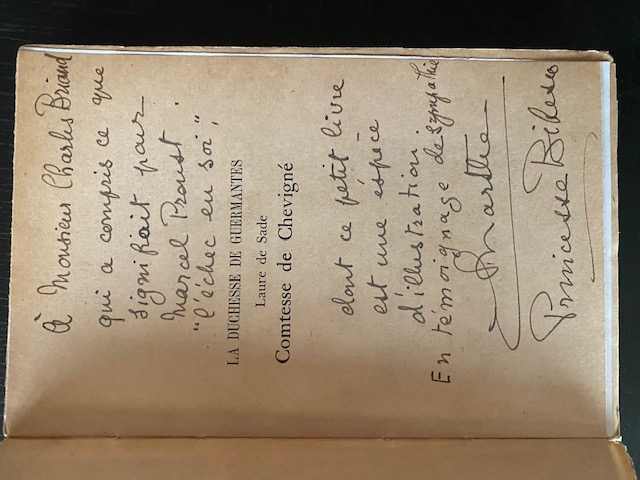 à Monsieur Charles Briand
qui a compris ce que
signifiait pour
Marcel Proust
"l'échec en soi,"
LA DUCHESSE DE GUERMANTES
Laure de Sade
Comtesse de Chevigné
dont ce petit livre
est une espèce
d'illustration.
En témoignage de sympathie
Marthe
Princesse Bibesco